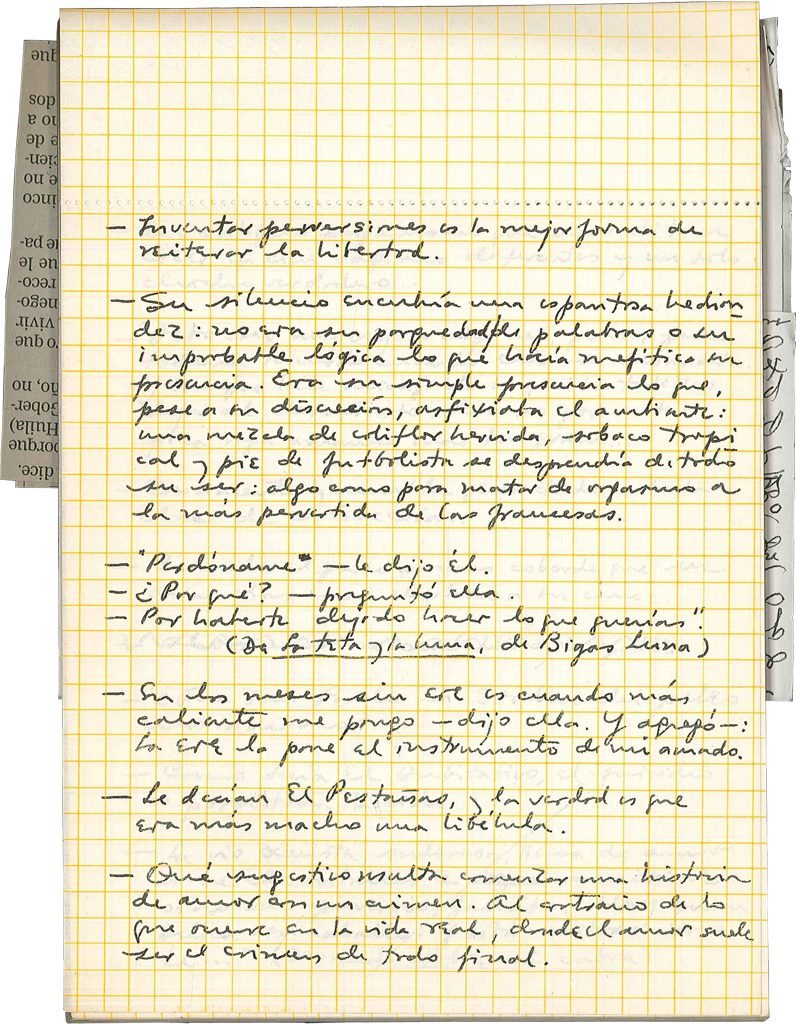 — Inventar perversiones es la mejor forma de
reiterar la libertad.
— Su silencio encubría una espantosa hedion
dez: no era su porquedad de palabras o su
improbable lógica lo que hacía mefítica su
presencia. Era su simple presencia lo que,
pese a su discreción, asfixiaba el ambiente:
una mezcla de coliflor hervida, sobaco tropi
cal y pie de futbolista se desprendía de todo
su ser: algo como para matar de orgasmo a
la más pervertida de las francesas.
— "Perdóname" — le dijo él.
— ¿Por qué? — preguntó ella.
— Por haberte dejado hacer lo que querías".
(De La teta y la luna, de Bigas Luna)
— En los meses sin ere es cuando más
caliente me pongo — dijo ella. Y agregó —:
La ere la pone el instrumento de mi amado.
— Le decían El Pestañas, y la verdad es que
era más macho una libélula.
— Qué sugestivo resulta comenzar una historia
de amor con un crimen. Al contrario de lo
que ocurre en la vida real, donde el amor suele
ser el crimen de todo final.
que
dos
no a
e de
cien-
e no
cinco
ue pa-
que le
reco-
nego-
vivir
o que
ño, no
Gober-
Huila)
porque
dice.